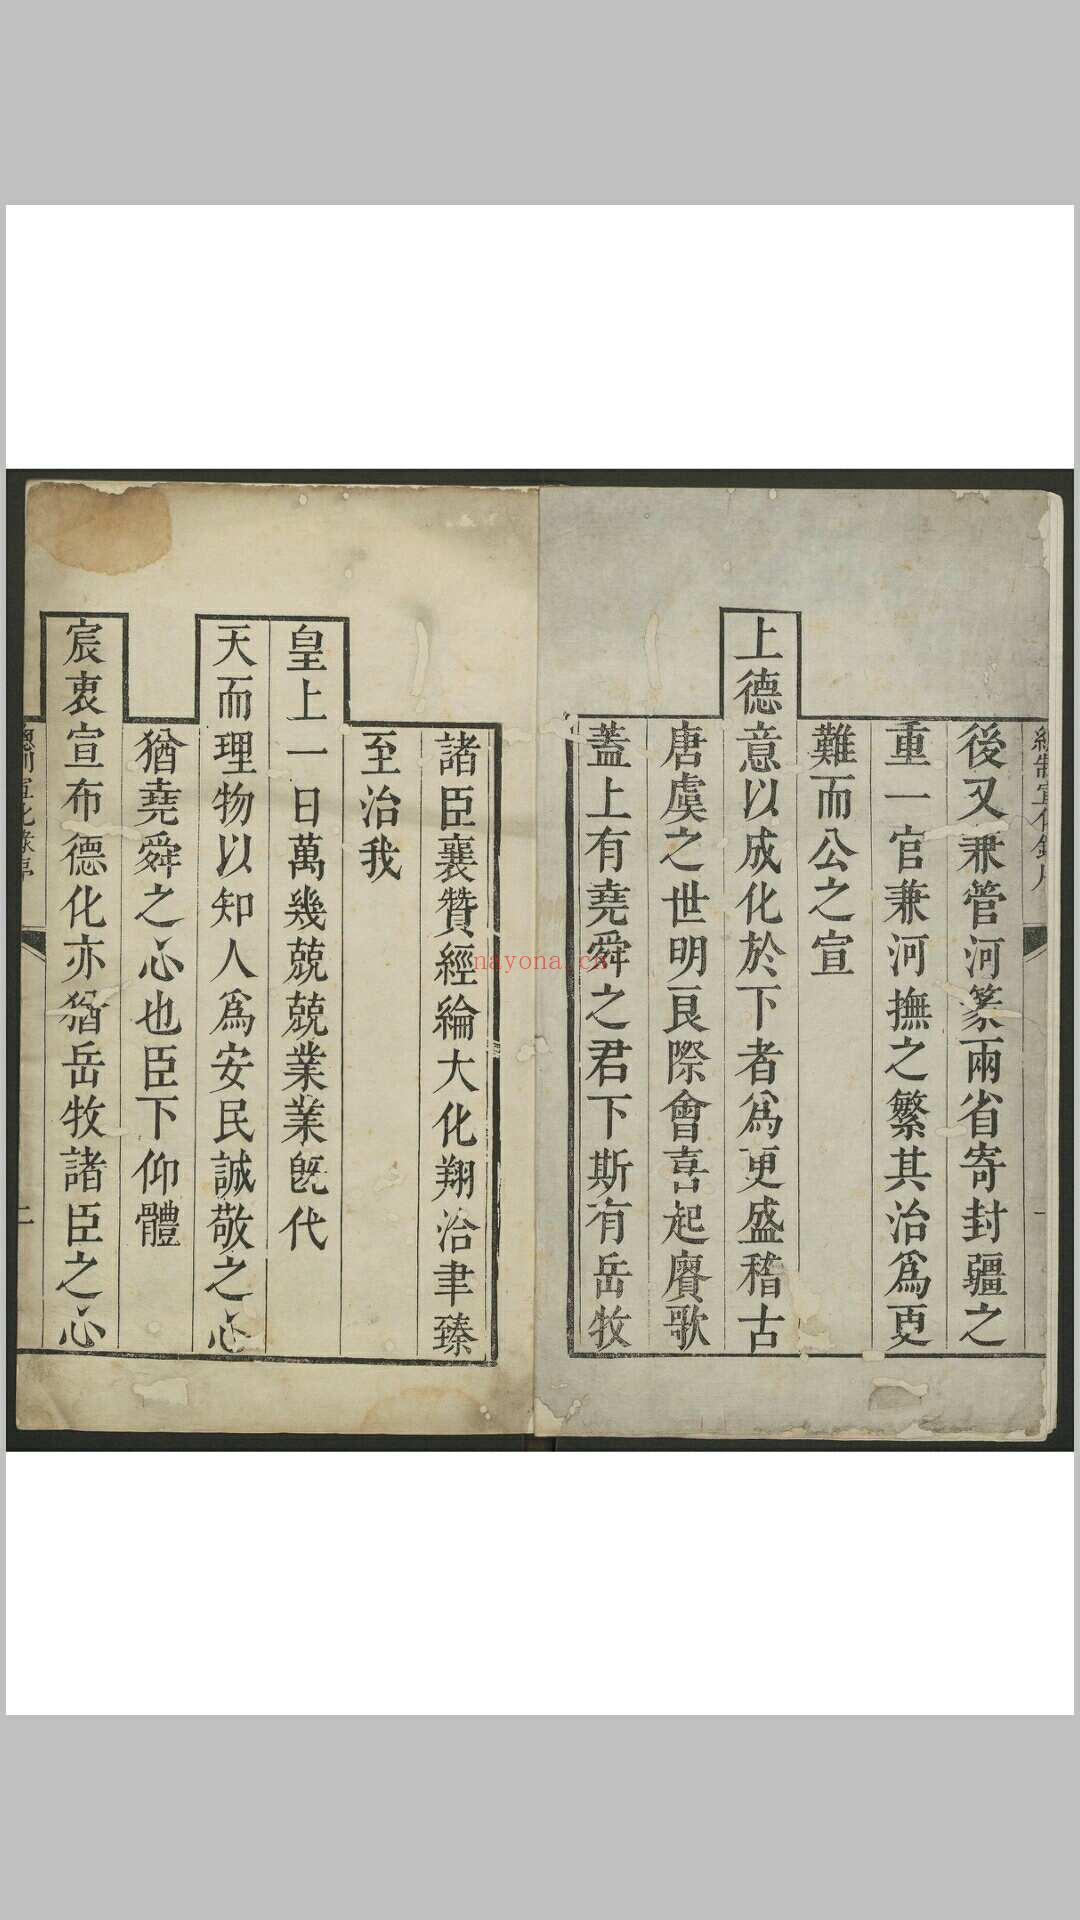 後又兼管河篆兩省寄封疆之
重一官兼河撫之繁其治爲更
難而公之宣
上德意以成化於下者爲更盛稽古
唐虞之世明良際會喜起賡歌
蓋上有堯舜之君下斯有岳牧
諸臣襄贊經綸大化翔洽聿臻
至治我
皇上一日萬幾兢兢業業旣代
天而理物以知人爲安民誠敬之心
猶堯舜之心也臣下仰體
宸衷宣布德化亦猶岳牧諸臣之心
nayona.cn